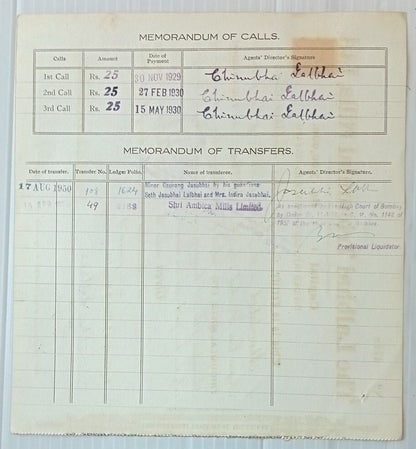 MEMORANDUM OF CALLS.
Calls Amount Date of Payment Agents' Director's Signature
1st Call Rs. 25 30 NOV 1929 Chinubhai Lalbhai
2nd Call Rs. 25 27 FEB 1930 Chinubhai Lalbhai
3rd Call Rs. 25 15 MAY 1930 Chinubhai Lalbhai
MEMORANDUM OF TRANSFERS.
Date of transfer. Transfer No. Ledger Folio. Name of transferee. Agents' Director's Signature.
17 AUG 1930 108 1624 Minor Gaurang Jasubhai by his guardians
Seth Jasubhai Lalbhai and Mrs. Indira Jasubhai.
49 Shri Ambica Mills Limited.
High Court of Bombay
No. 1142 of
Provisional Liquidator